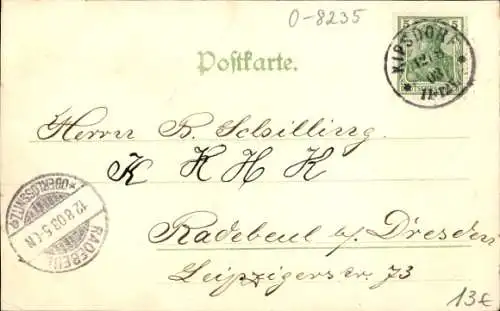 O-8235
5 5
KIPSDORF
12/8
03
11-12
Postkarte.
Herrn B. Schilling.
K K H K
Radebeul b/ Dresden
Leipzigerstr. 73
RADEBEUL
12 8 03 5-6N
*(OBERLÖSSNITZ)*
13€